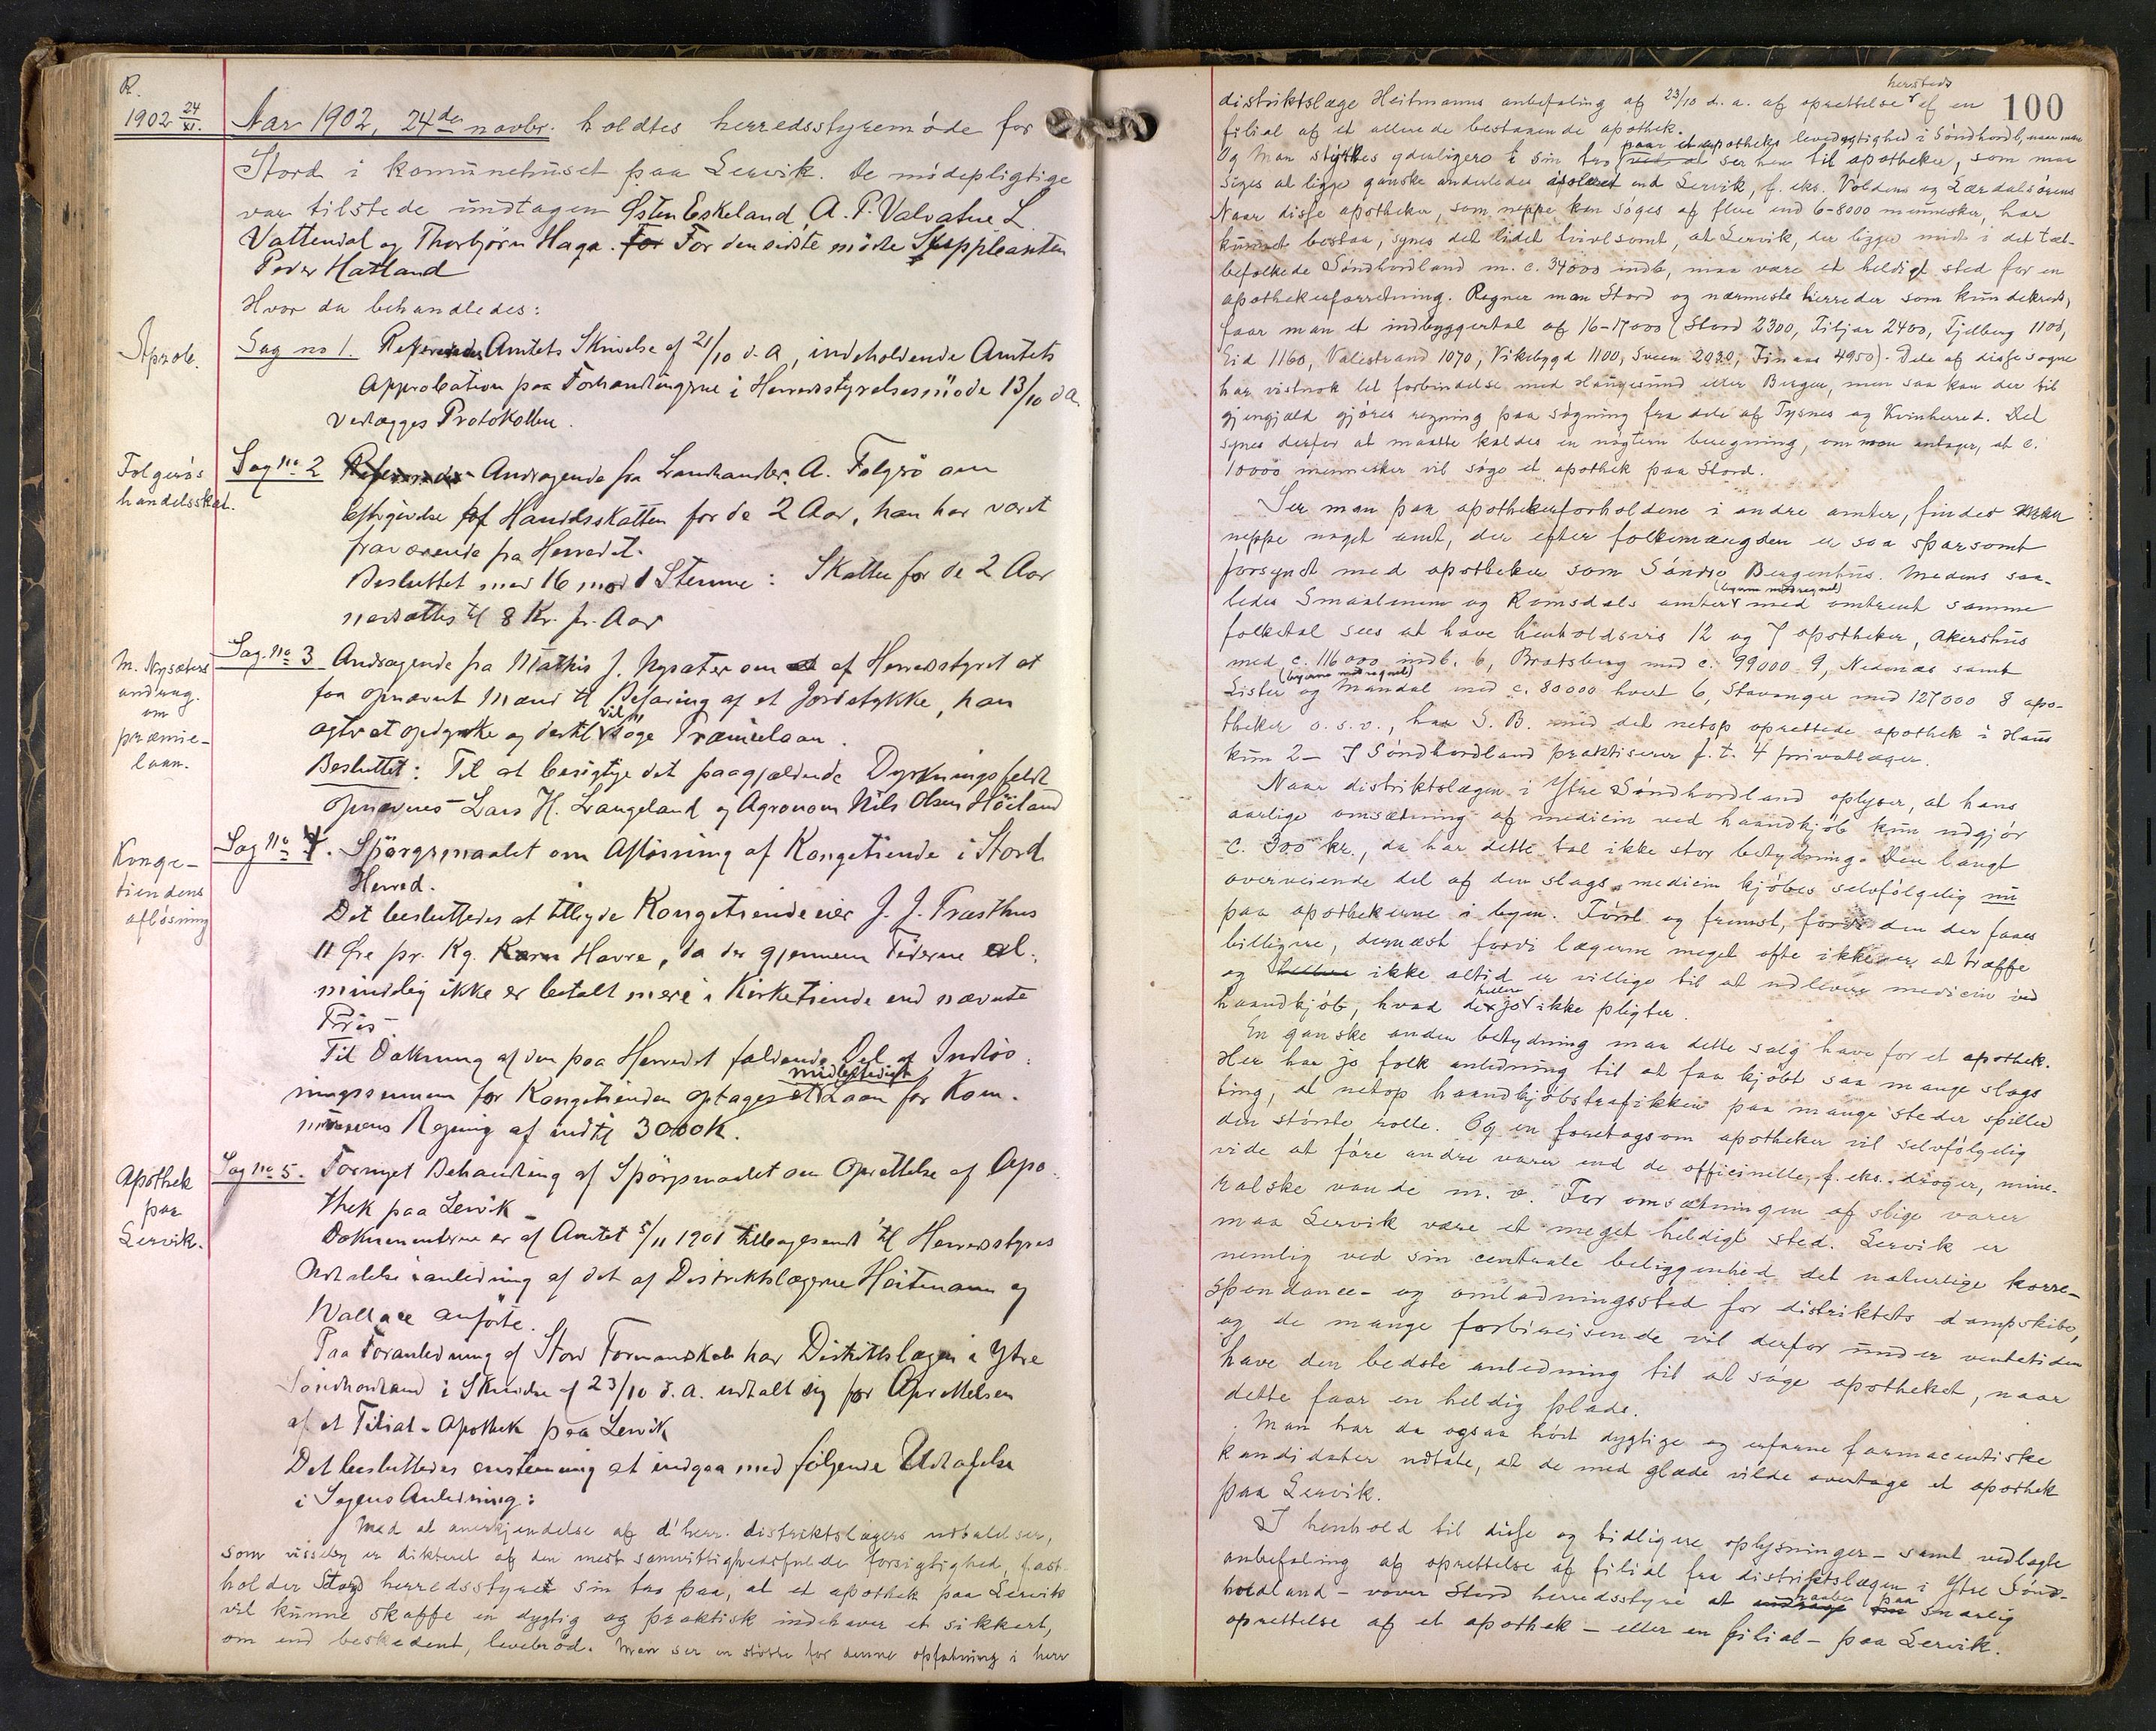 R.
1902 24/XI.
Aar 1902, 24de novbr. holdtes herredsstyremøde for
Stord i komünehuset paa Lervik. De mødepligtige
var tilstede undtagen Østen Eskeland, A. P. Valvatne L.
Vattendal og Thorbjørn Haga. For For den sidste mødte Suppleanten
Peder Hatland
Hvor da behandledes:
Aprob.
Sag no 1. Refereredes Amtets Skrivelse af 21/10 d.a, indeholdende Amtets
Approbation paa Forhandlingerne i Herredsstyrelsesmøde 13/10 d a.
Vedlægges Protokollen.
Folgerøs
handelsskat.
Sag No 2 Refereredes Andragende fra Landhandler A. Folgerø om
Eftergivelse af Handelsskatten for de 2 Aar, han har været
fraværende fra Herredet.
Besluttet med 16 mod 1 Stemme: Skatten for de 2 Aar
nedsættes til 8 Kr. pr. Aar
M. Nysæters
andrag.
om
præmie-
laan.
Sag. No 3 Andragende fra Mathis J. Nysæter om at af Herredsstyret at
faa opnævnt Mænd til Befaring af et Jordstykke, han
agter at opdyrke og dertil vil søge Præmielaan.
Besluttet: Til at besigtige det paagjældende Dyrkningsfeldt
opnævnes Lars H. Langeland og Agronom Nils Olsen Høiland
Konge-
tiendens
afløsning
Sag No 4. Spørgsmaalet om Afløsning af Kongetiende i Stord
Herred.
Det besluttedes at tilbyde Kongetiendeeier J. J. Træsthus
11 Øre pr. Kg. Korn Havre, da der gjennem Tiderne al-
mindelig ikke er betalt mere i Kirketiende end nævnte
Pris
Til Dækning af den paa Herredet faldende Del af Indløs-
ningssummen for Kongetienden optages et midlertidigt Laan for Kom-
munens Regning af indtil 3000 K.
Apothek
paa
Lervik.
Sag No 5. Fornyet Behandling af Spørgsmaalet om Oprettelse af Apo-
thek paa Lervik
Dokumenterne er af Amtet 5/11 1901 tilbagesendt til Herredsstyrets
Udtalelse i anledning af det af Distriktslægerne Heitmann og
Wallace anførte.
Paa Foranledning af Stord Formandskab har Distriktslægen i Ytre
Søndhordland i Skrivelse af 23/10 d. a. udtalt sig for Oprettelsen
af et Filial-Apothek paa Lervik
Det besluttedes enstemmig at indgaa med følgende Udtalelse
i Sagens Anledning:
Med al anerkjendelse af d'herr. distriktslægers udtalelser,
som visselig er dikteret af den mest samvittighedsfulde forsigtighed, fast-
holder Stord herredsstyret sin tro paa, at et apothek paa Lervik
vil kunne skaffe en dygtig og praktisk indehaver et sikkert,
om end beskedent, levebrød. Man ser en støtte for denne opfatning i herr
100
distriktslæge Heitmanns anbefaling af 23/10 d. a. af oprettelse hersteds af en
filial af et allerede bestaaende apothek.
Og man styrkes yderligere i sin tro paa et apotheks levedygtighed i Søndhordl., naar man
ved at ser hen til apotheker, som maa
siges at ligge ganske anderledes isoleret end Lervik, f. eks. Voldens og Lærdalsørens
Naar disse apotheker, som neppe kan søges af flere end 6-8000 mennesker, har
kunnet bestaa, synes det lidet tvivlsomt, at Lervik, der ligger midt i det tæt-
befolkede Søndhordland m. c. 34000 indb, maa være et heldigt sted for en
apothekerforretning. Regner man Stord og nærmeste herreder som kundekreds,
faar man et indbyggertal af 16-17000 (Stord 2300, Fitjar 2400, Fjelberg 1100,
Eid 1160, Valestrand 1070, Vikebygd 1100, Sveen 2020, Finaas 4950). Dele af disse sogne
har vistnok let forbindelse med Haugesund eller Bergen, men saa kan der til
gjengjæld gjøres regning paa søgning fra dele af Tysnes og Kvinherred. Det
synes derfor at maatte kaldes en nøgtern beregning, om man antager, at c.
10000 mennesker vil søge et apothek paa Stord.
Ser man paa apothekerforholdene i andre amter, findes man
neppe noget amt, der efter folkemængden er saa sparsomt
forsynet med apotheker som Søndre Bergenhus. Medens saa-
ledes Smaalenene og Romsdals amter (byerne medregnet) med omtrent samme
folketal sees at have henholdsvis 12 og 7 apotheker, Akershus
med c. 116000 indb. 6, Bratsberg med c. 99000 9, Nedenæs samt
Lister og Mandal (byerne medregnet) med c. 80000 hvert 6, Stavanger med 127000 8 apo-
theker o. s. v., har S. B. med det netop oprettede apothek i Haus
kun 2 – I Søndhordland praktiserer f. t. 4 privatlæger.
Naar distriktslægen i Ytre Søndhordland oplyser, at hans
aarlige omsætning af medicin ved haandkjøb kun udgjør
c. 300 kr., da har dette tal ikke stor betydning. Den langt
overveiende del af den slags medicin kjøbes selvfølgelig nu
paa apothekerne i byen. Først og fremst, fordi den der faaes
billigere, dernæst fordi lægerne meget ofte ikke er at træffe
og heller ikke altid er villige til at udlevere medicin ved
haandkjøb, hvad de jo heller ikke pligter.
En ganske anden betydning maa dette salg have for et apothek.
Her har jo folk anledning til at faa kjøbt saa mange slags
ting, at netop haandkjøbstrafikken paa mange steder spiller
den største rolle. Og en foretagsom apotheker vil selvfølgelig
vide at føre andre varer end de officinelle, f. eks. droger, mine-
ralske vande m. v. For omsætningen af slige varer
maa Lervik være et meget heldigt sted. Lervik er
nemlig ved sin centrale beliggenhed det naturlige korre-
spondance- og omladningssted for distriktets dampskibe,
og de mange forbireisende vil derfor under ventetiden
have den bedste anledning til at søge apotheket, naar
dette faar en heldig plads.
Man har da ogsaa hørt dygtige og erfarne farmaceutiske
kandidater udtale, at de med glæde vilde overtage et apothek
paa Lervik.
I henhold til disse og tidligere oplysninger – samt vedlagte
anbefaling af oprettelse af filial fra distriktslægen i Ytre Sønd-
hordland – vover Stord herredsstyre at andrage om haabe paa snarlig
oprettelse af et apothek – eller en filial – paa Lervik.